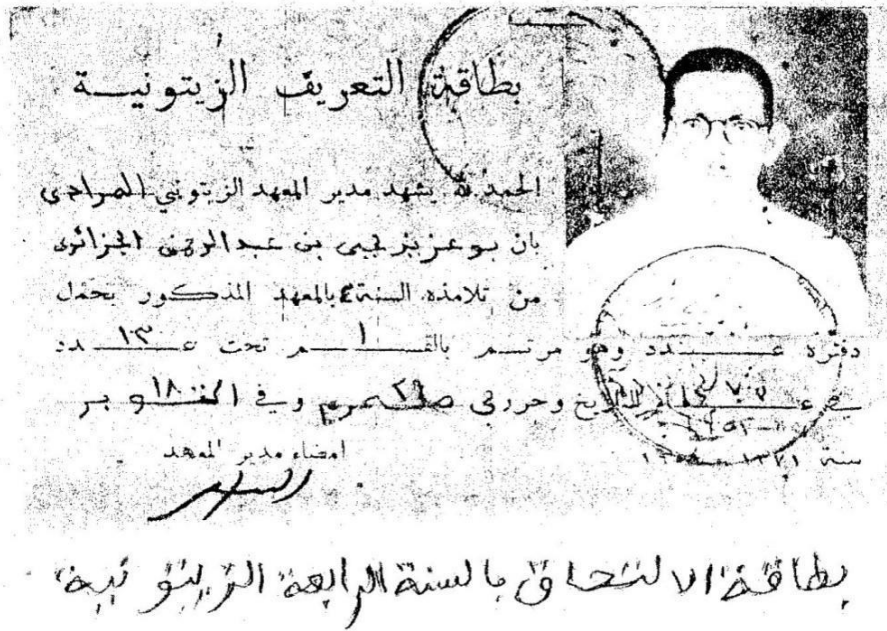 بطاقة التعريف الزيتونية
الحمد لله يشهد مدير المعهد الزيتوني المرادي
بان بوعزيز يحيى بن عبد الرحمن الجزائري
من تلامذة السنة ٤ بالمعهد المذكور يحمل
دفتره عدد وهو مرتسم بالقسم ١ تحت عدد ١٣
التاريخ وحرر في وفي ١٨ اكتوبر
سنة ١٣٧١
امضاء مدير المعهد
بطاقة الالتحاق بالسنة الرابعة الزيتونية